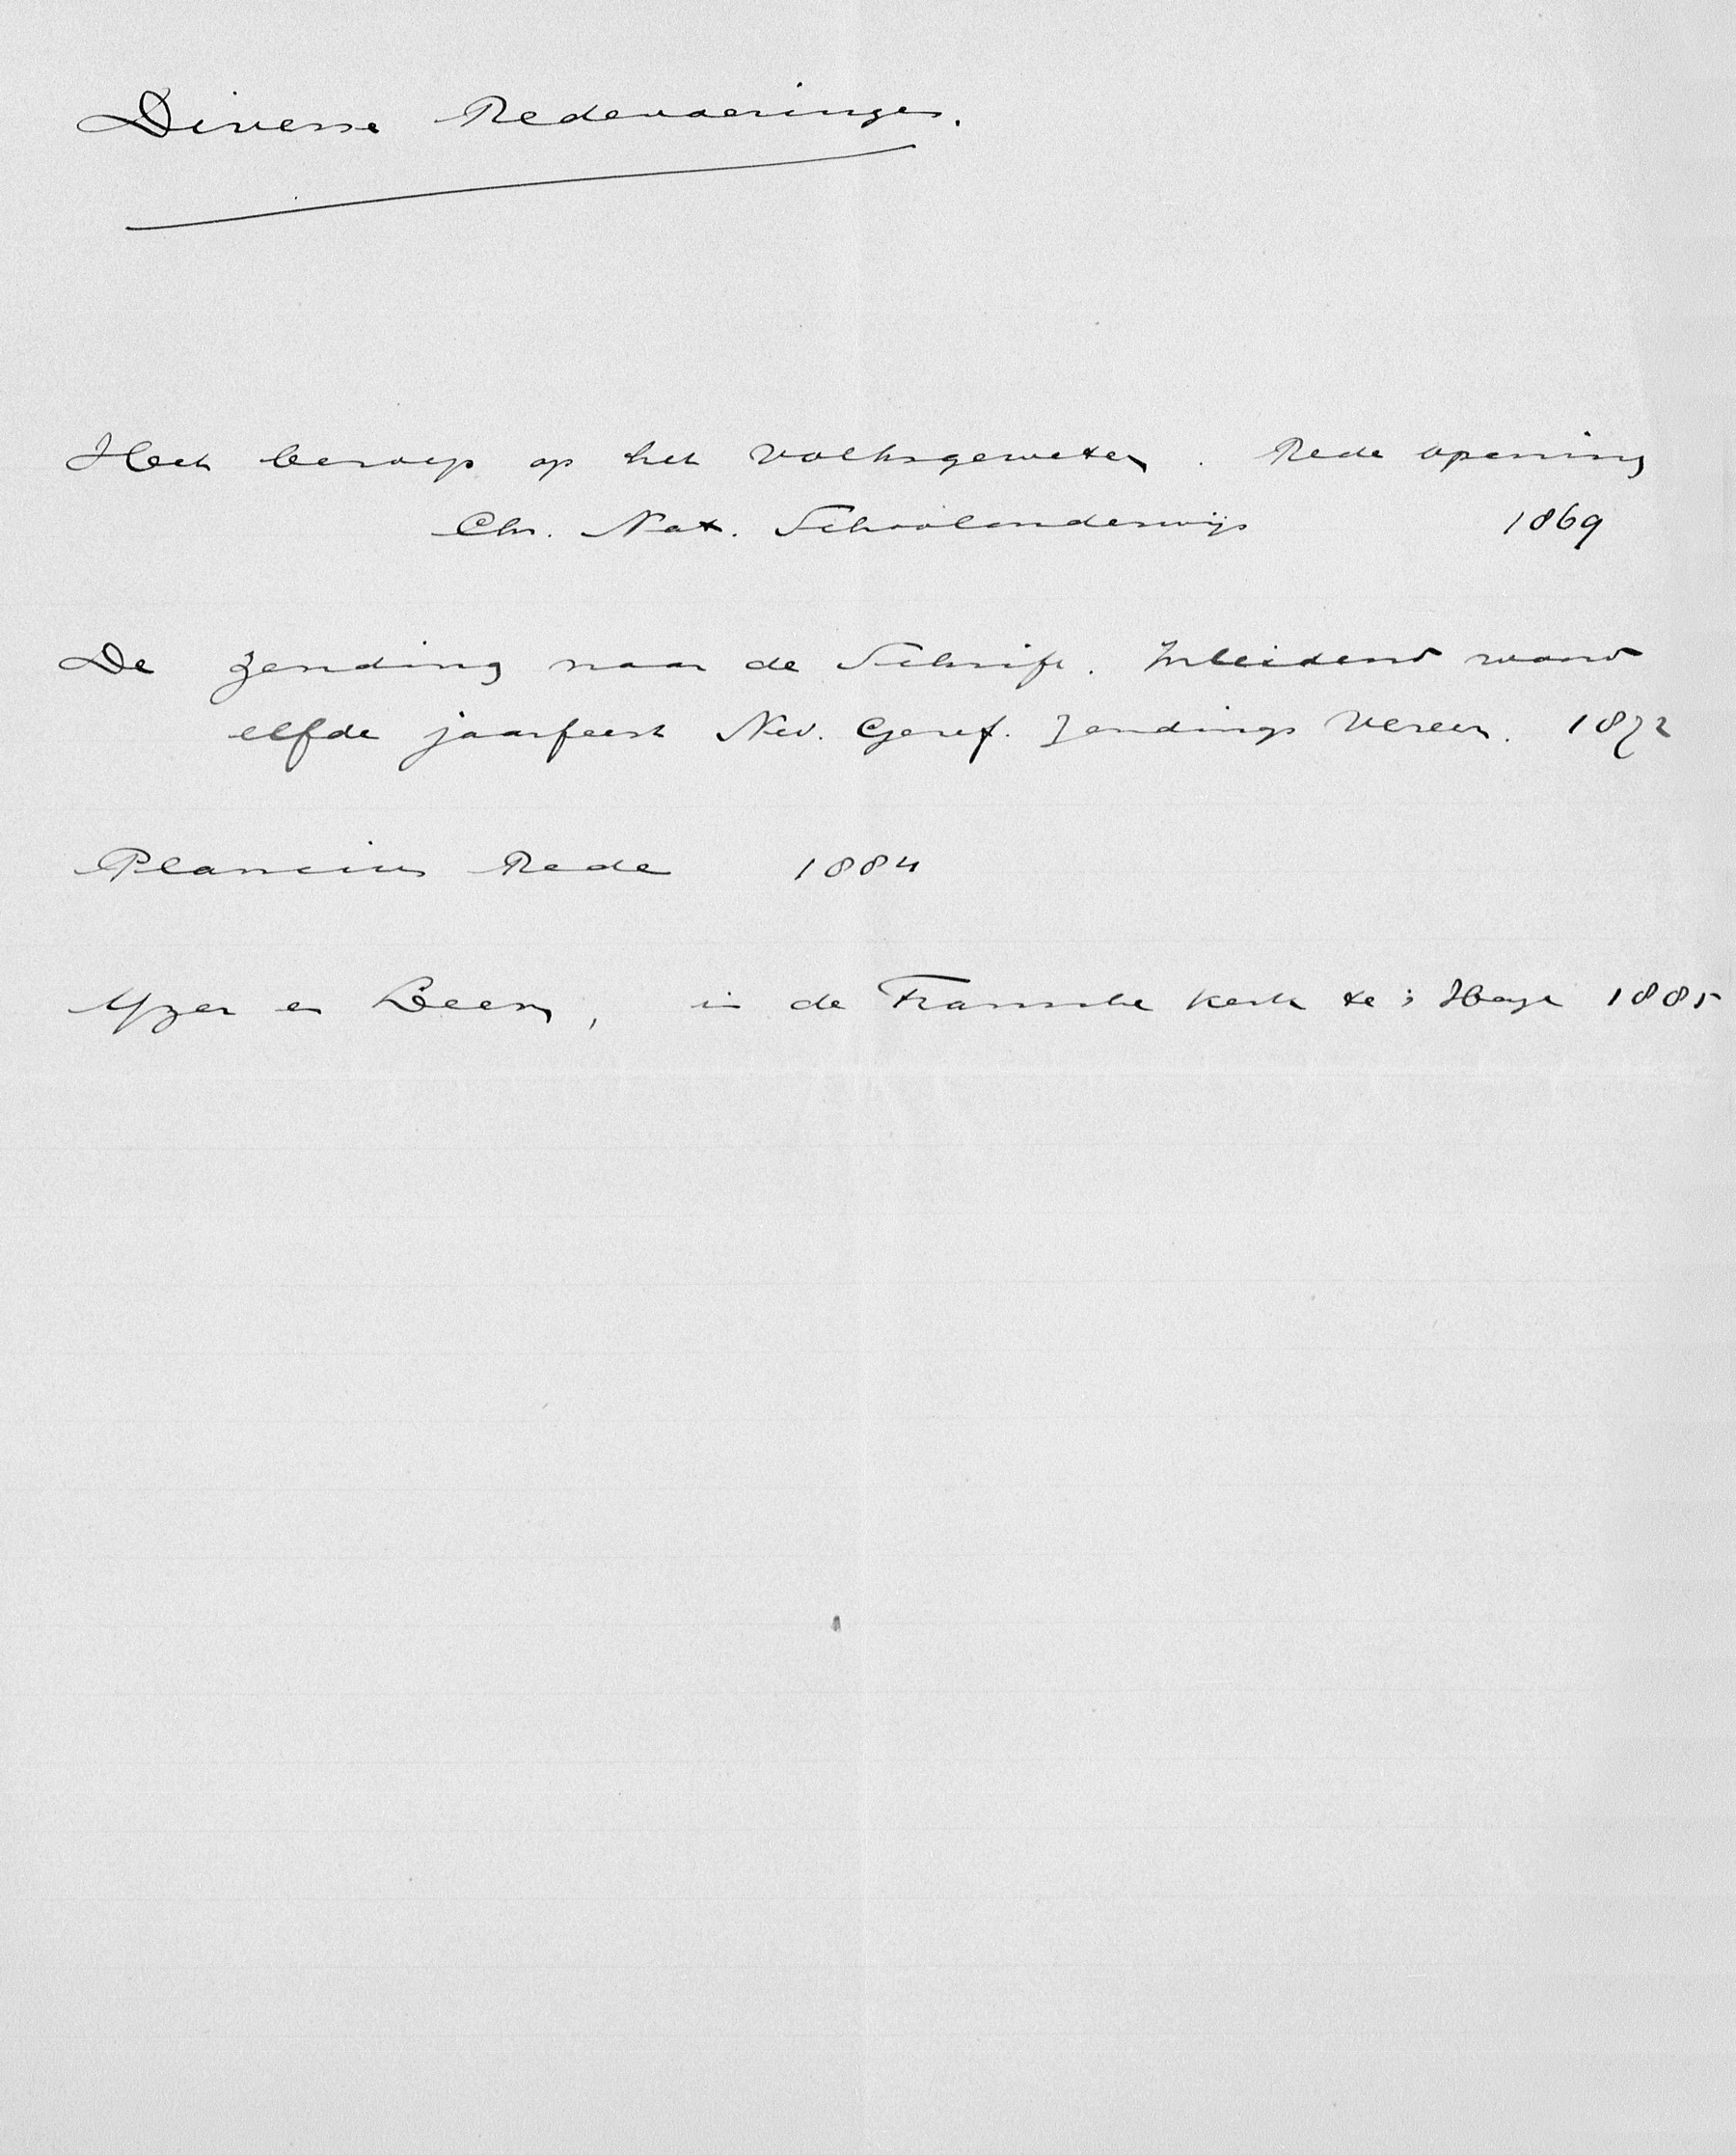 Diverse Redevoeringen.
Het beroep op het Volksgeweten. Rede opening
Chr. Nat. Schoolonderwijs 1869
De zending naar de Schrift. Inleidend woord
elfde jaarfeest Ned. Geref. Zendings Vereen. 1872
Plancius Rede 1884
Yzer en Leem, in de Fransche Kerk te 's Hage 1885